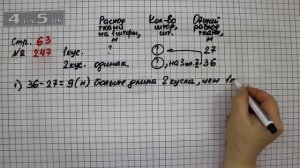 4 а 5 ям
Расход Кол-во Общий
ткани штор, расход
на 1 штору, шт. ткани,
м м
Стр. 63
№ 247
1 кус. ? ? 27
2 кус. одинак. ?, на 3 шт. б. 36
1) 36-27=9(м) больше длина 2 куска, чем 1